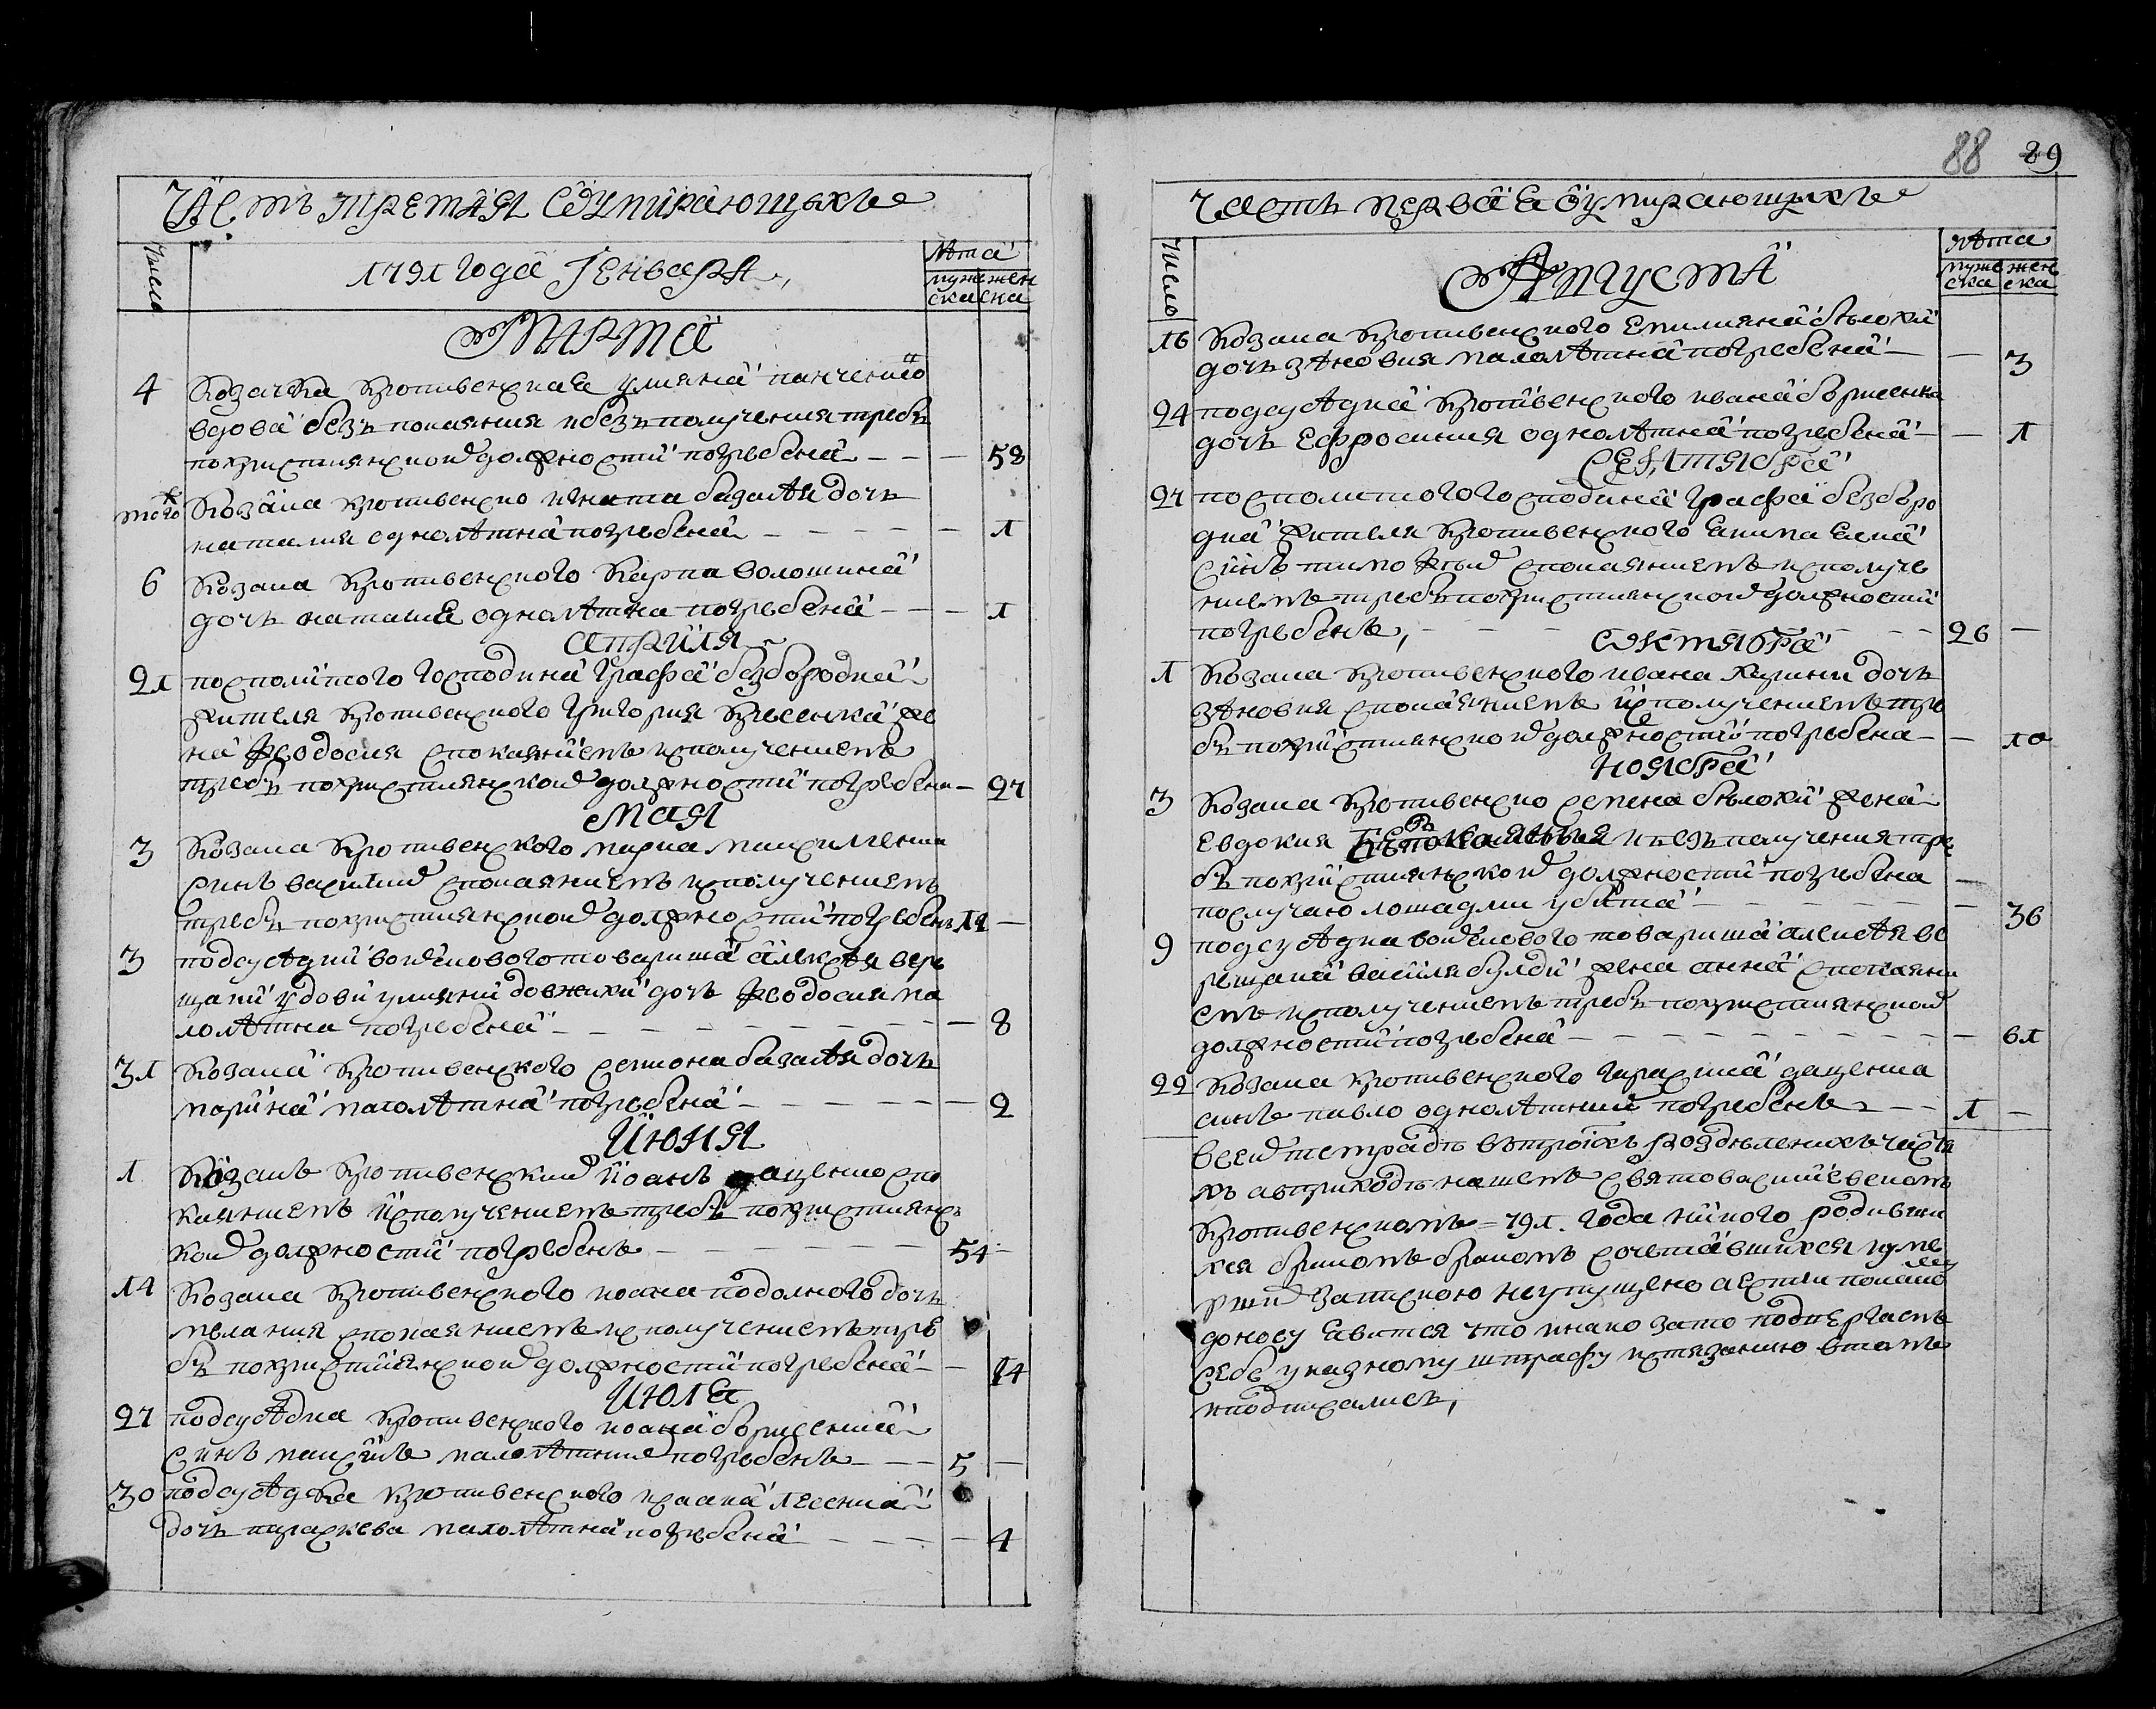 Часть третая о умирающихъ
число
1791 года Генваря,
лѣта
мужеска женска
Марта
4 Козачка кропивенская улияна панченкова
вдова безъ покаяния и безъ получения требъ
по християнской должности погребена — — — 58
того Козака кропивенско игната базалѣя дочь
наталия однолѣтна погребена — — — 1
6 Козака кропивенского карпа волошина
дочь наталия однолѣтна погребена — — — 1
априля
21 посполитого господина графа безбородка
жителя кропивенского григория кресенка же
на феодосия спокаяниемъ исполучениемъ
требъ по християнской должности погребена — 27
Мая
3 Козака кропивенского марка максименка
синъ василий спокаяниемъ исполучениемъ
требъ по християнской должности погребенъ 12 —
3 подсусѣдки войскового товариша алексѣя вере
щаки удови улияни довжики дочь феодосия ма
лолѣтна погребена — — — 8
31 Козака кропивенского семиона базалѣя дочь
марина малолѣтна погребена — — — 2
Июня
1 Козакъ кропивенский иоанъ даценко спо
каяниемъ исполучениемъ требъ по християнс
кой должности погребенъ — — — 54 —
14 Козака кропивенского иоана подолного дочь
мелания спокаяниемъ исполучениемъ тре
бъ по християнской должности погребена — 14
Июля
27 подсусѣдка кропивенского иоана борисенка
синъ максимъ малолѣтний погребенъ — — 5 —
30 подсусѣдка кропивенского исаака лесенка
дочь параскева малолѣтна погребена — — — 4
88 89
Часть перва о умирающихъ
число
Августа
лѣта
мужеска женска
16 Козака кропивенского емилияна бѣлохи
дочь зѣновия малолѣтна погребена — — 3
24 подсусѣдка кропивенского ивана борисенка
дочь ефросиния однолѣтна погребена — — 1
сентября
27 посполитого господина графа безборо
дка жителя кропивенского
синъ тимофей спокаяниемъ исполуче
ниемъ требъ по християнской должности
погребенъ, — — — 26 —
октября
1 Козака кропивенского ивана дочь
зѣновия спокаяниемъ исполучениемъ тре
бъ по християнской должности погребена — — 10
ноября
3 Козака кропивенско семена бѣлохи жена
евдокия безъ покаяния и безъ получения тре
бъ по християнской должности погребена —
послучаю лошадми убита — — — 36
9 подсусѣдка войскового товариша алексѣя ве
рещаки василя булди жена анна спокаяни
емъ исполучениемъ требъ по християнской
должности погребена — — — 61
22 Козака кропивенского гарасима даценка
синъ павло однолѣтний погребенъ — — 1 —
всей тетрадѣ въ троихъ роздѣленихъ частя
хъ а въ приходѣ нашемъ святовасилиевскомъ
кропивенскомъ 791. года никого родивши
хся бракомъ сочетавшихся и уме
рший запискою неупущено а если по
доносу явится что инако за то подвергаемъ
себѣ указному штрафу истязанию втомъ
иподписались,